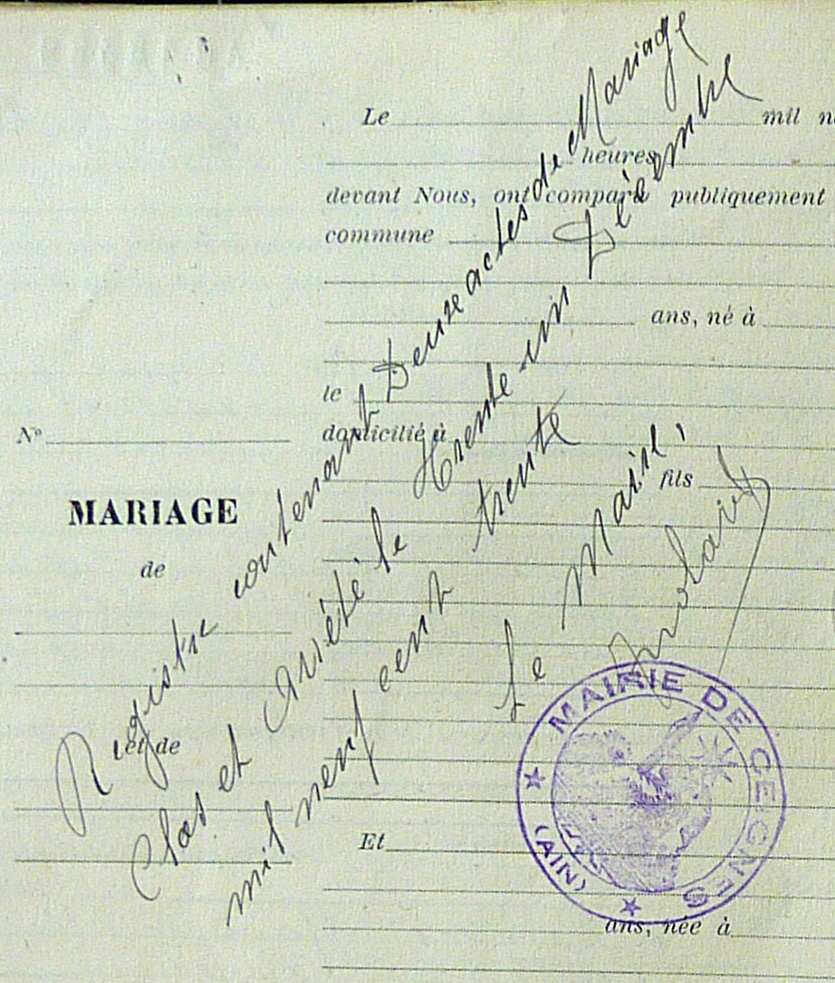 Le mil n
heures
devant Nous, ont comparu publiquement
commune
ans, né à
le
N° domicilié à
fils
MARIAGE
de
et de
Et
ans, née à
Registre contenant Deux actes de Mariage
Clos et Arrêté le Trente-un Décembre
mil neuf cent trente
Le Maire,
MAIRIE DE CEIGNES
(AIN)